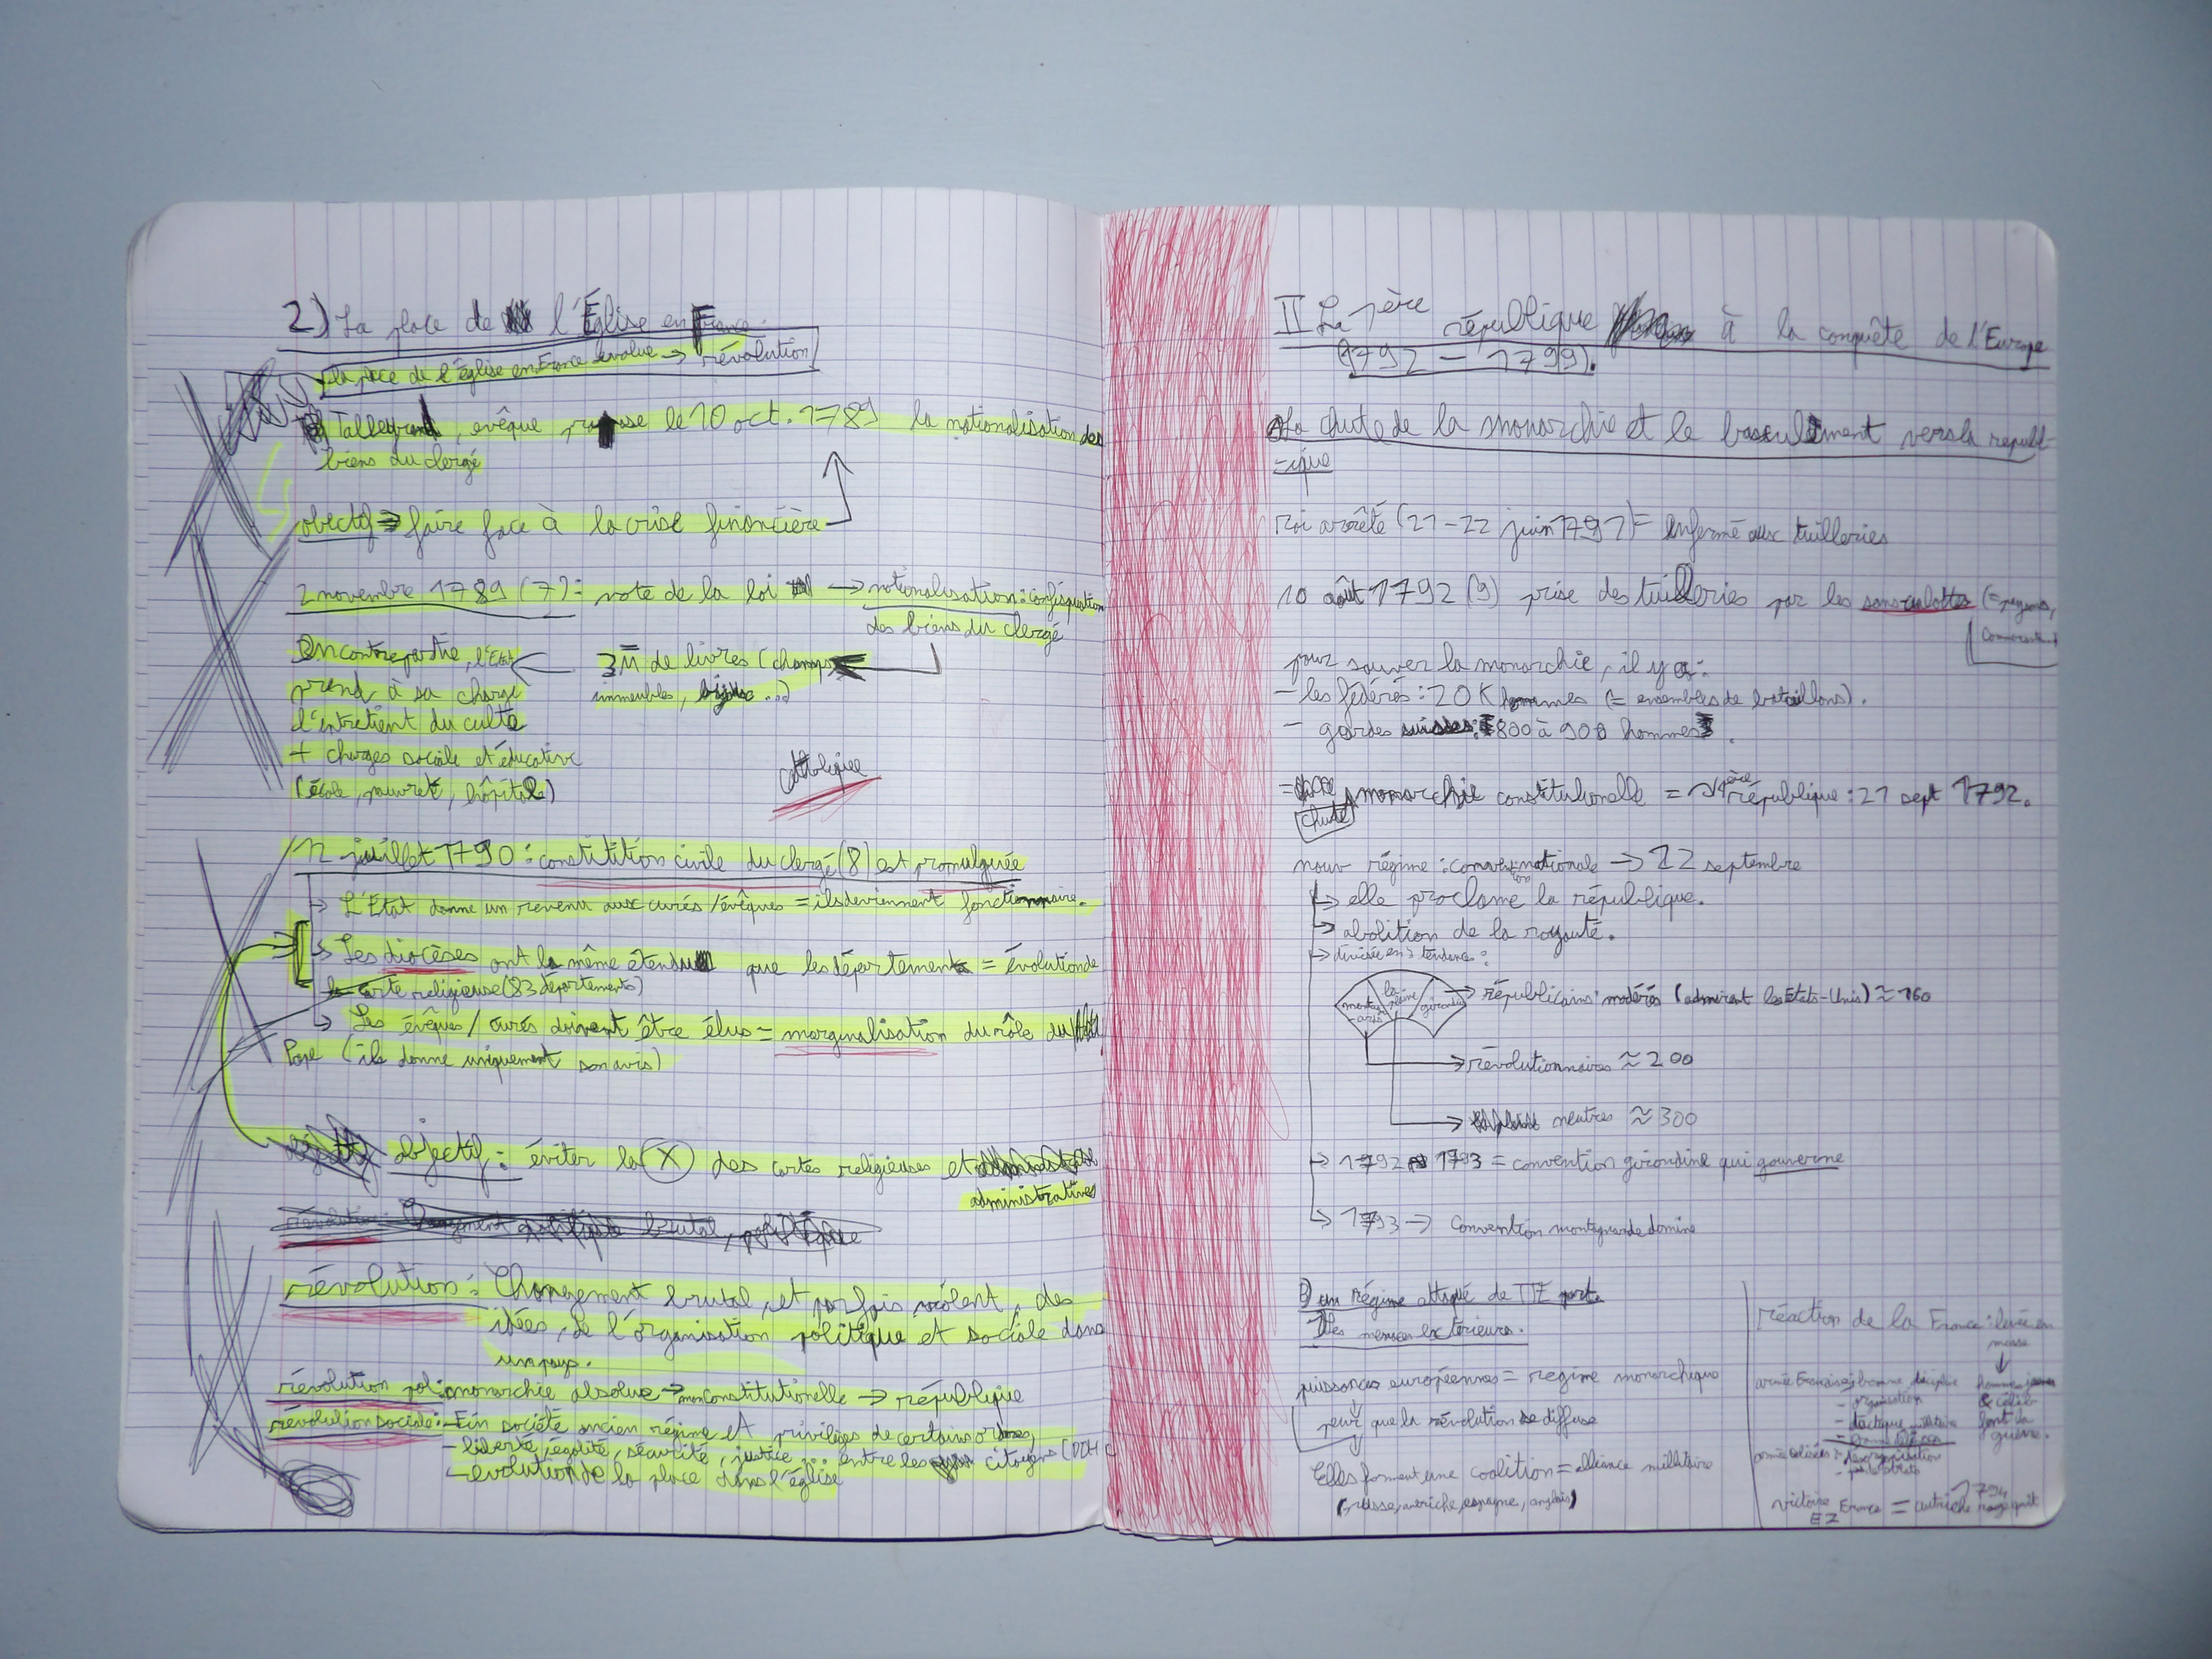 2) La place de l'Église en France.
la place de l'église en France évolue → révolution
Talleyrand, evêque propose le 10 oct. 1789 la nationalisation des
biens du clergé
obectif ⇒ faire face à la crise financière
2 novembre 1789 (7): vote de la loi → nationalisation: confisquation
des biens du clergé
En contrepartie, l'Etat ← 3M de livres (champs
prend à sa charge immeubles, bijoux ...)
l'entretient du culte
+ charges sociale et éducative
(école, pauvret, hôpital)
catholique
12 juillet 1790: constitition civile du clergé (8) est promulguée
→ L'Etat donne un revenu aux curés/évêques = ils deviennent fonctionnaire.
→ Les diocèses ont la même étendu que les département = évolution de
la carte religieuse (83 départements)
→ Les évêques / curés doivent être élus = marginalisation du rôle du
Pape (ils donne uniquement son avis)
objectif: éviter la (X) des cartes religieuses et
administratives
révolution: Changement brutal, politique
révolution: Changement brutal, et parfois violent, des
idées, de l'organisation politique et sociale dans
un pays.
révolution pol: monarchie absolue → mon constitutionelle → république
révolution sociale: - Fin société ancien régime et privilèges de certains ordres,
- liberté, égalité, sécurité, justice ... entre les citoyens (DDHC
- evolution de la place dans l'église
II La 1ère république à la conquête de l'Europe
(1792 - 1799).
A La chute de la monarchie et le basculement vers la républ-
-ique
roi arrêté (21-22 juin 1791) = enfermé aux tuilleries
10 août 1792 (9) prise des tuilleries par les sans-culottes (=
pour sauver la monarchie, il y a:
- les fédérés: 20K hommes (= ensembles de bataillons).
- gardes suisses: 800 à 900 hommes.
= chute monarchie constitutionelle = 1ère république: 21 sept 1792.
nouv régime: convention nationale → 22 septembre
→ elle proclame la république.
→ abolition de la royauté.
→ divisée en 3 tendance:
montagn-ards la plaine girondins → républicains modérés (admirent les Etats-Unis) ≈ 160
→ révolutionnaires ≈ 200
→ neutres ≈ 300
→ 1792 1793 = convention girondine qui gouverne
→ 1793 → Convention montagnarde domine
B un Régime attaqué de TTE part
1 Des menaces extérieurs.
puissances européennes = regime monarchique
peur que la révolution se diffuse
Elles forment une coalition = alliance millitaire
(prusse, autriche, espagne, anglais)
réaction de la France: levée en
masse
armée Française: discipline
- organisation
- tactique militaire
hommes jeunes
& célib
font la
guerre.
- désorganisation
victoire France = autriche 1794
EZ